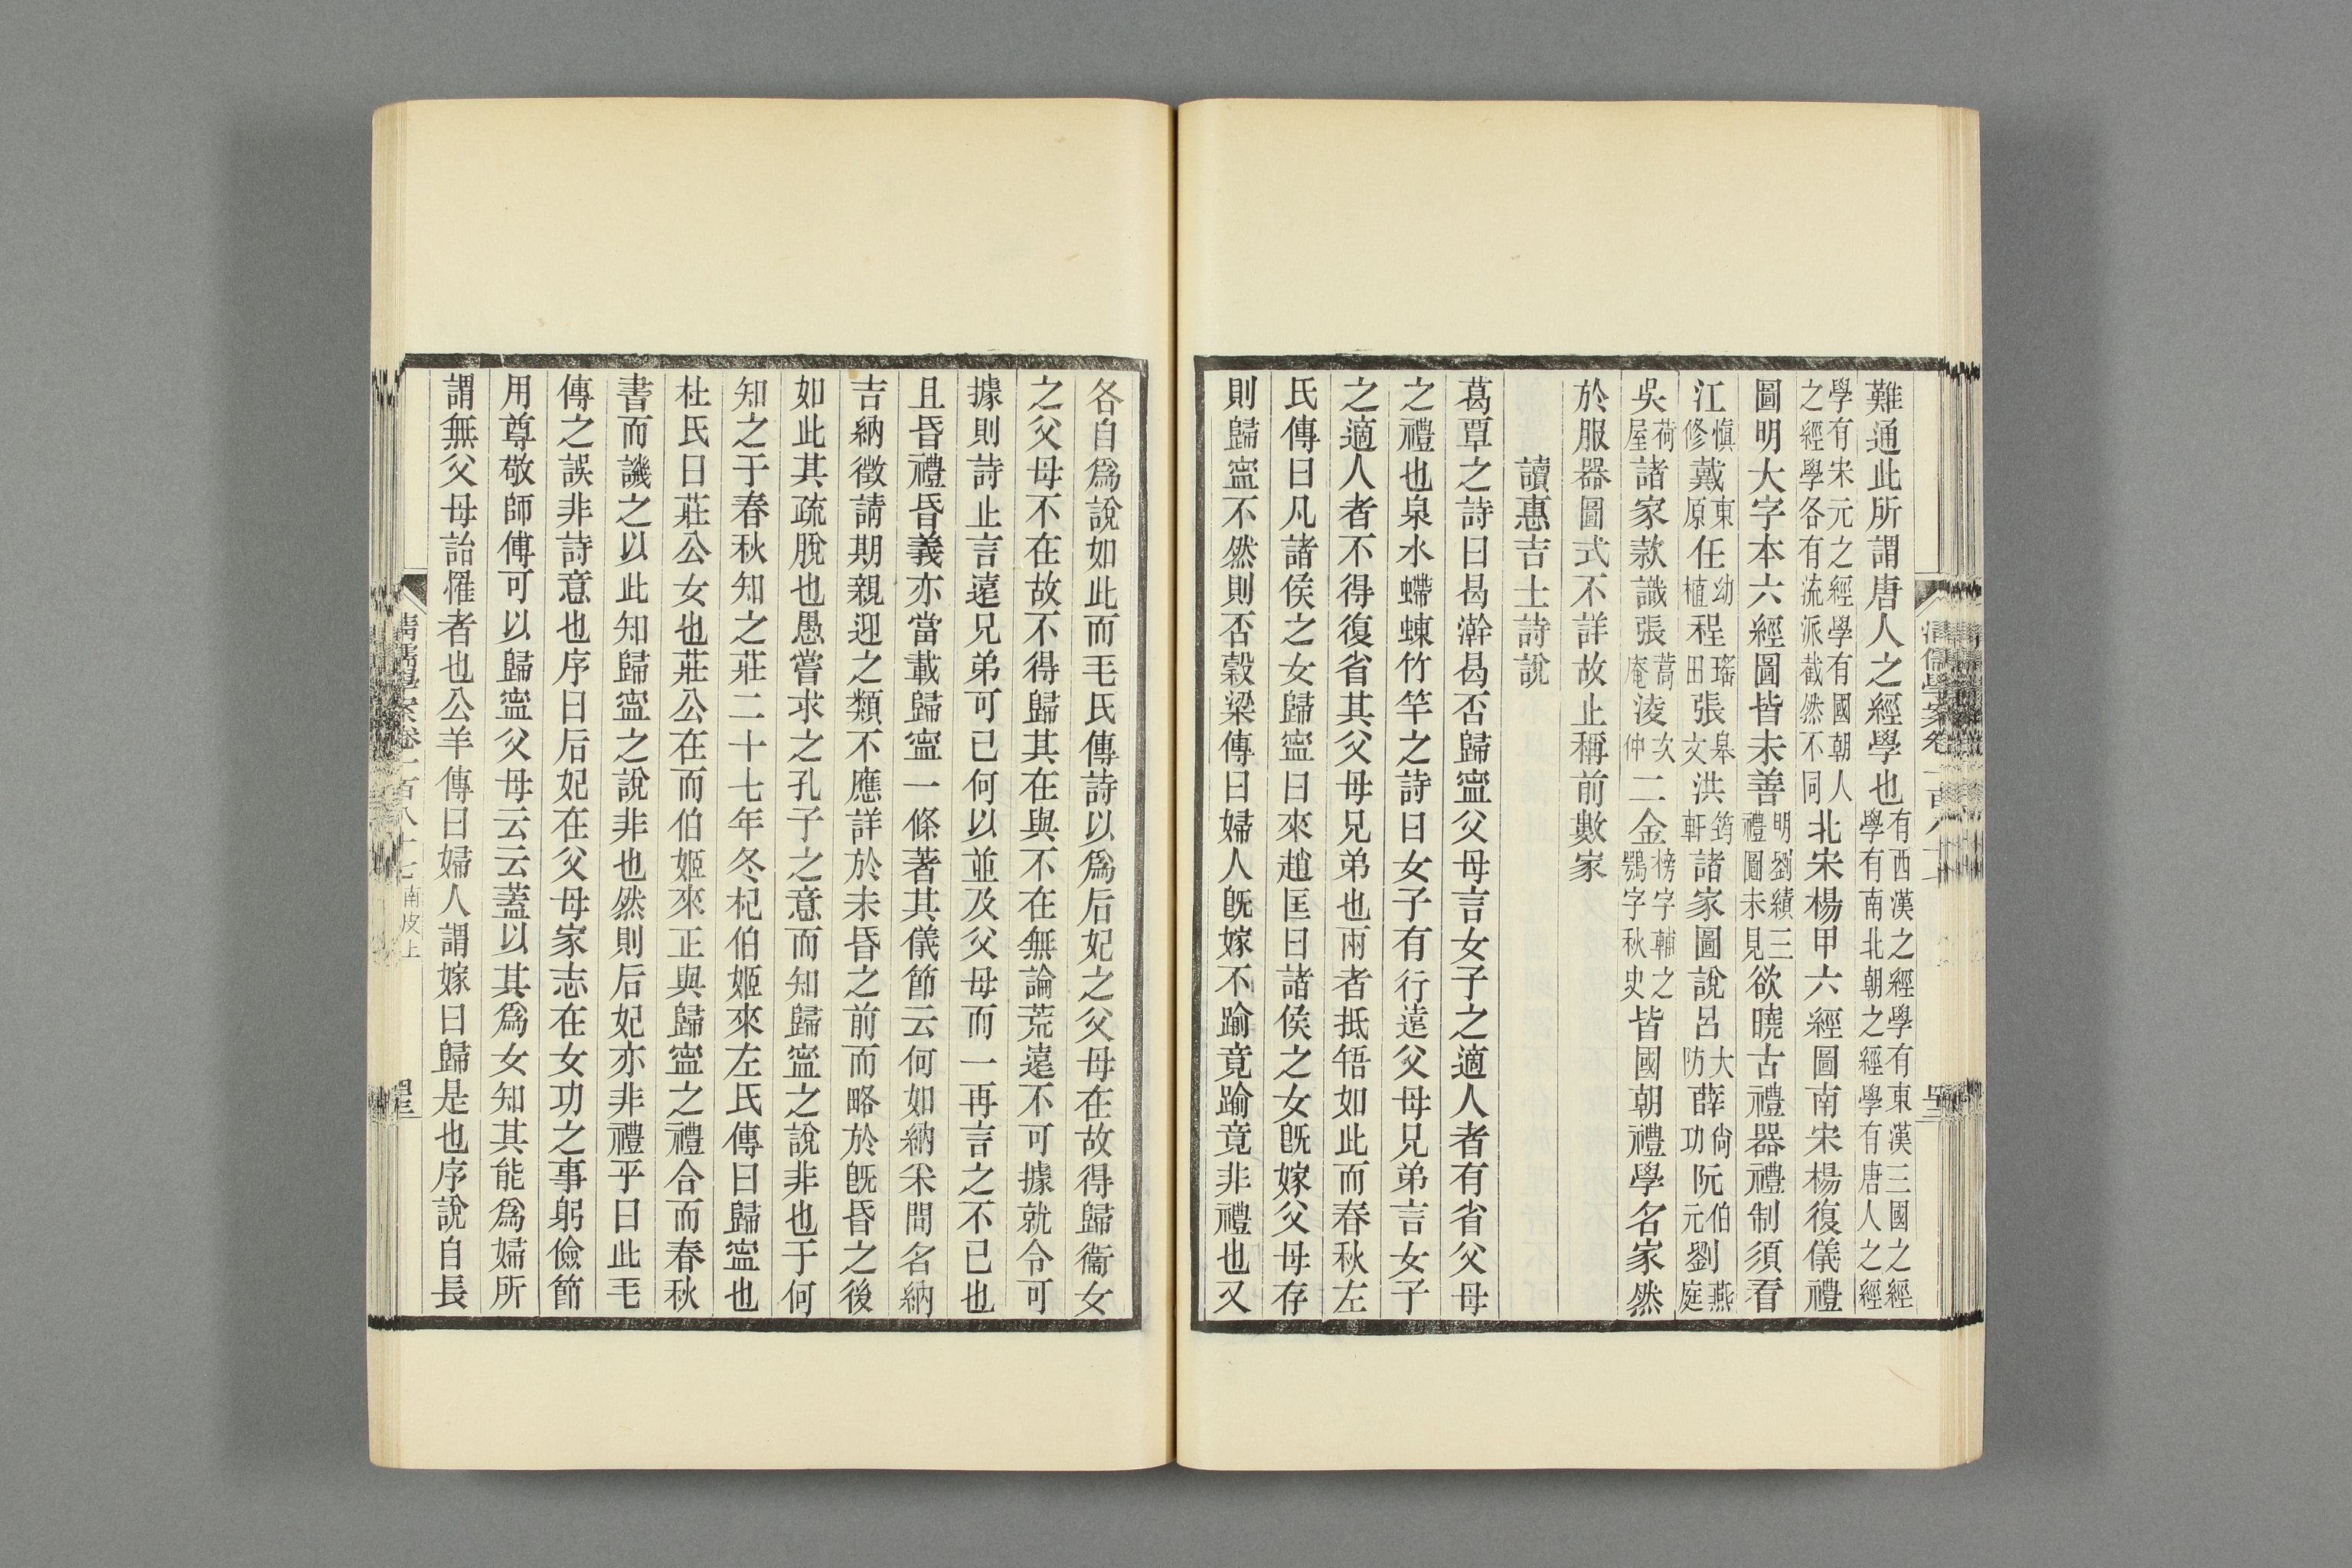 難通此所謂唐人之經學也有西漢之經學有東漢三國之經學有南北朝之經學有唐人之經
學有宋元之經學有國朝人之經學各有流派截然不同北宋楊甲六經圖南宋楊復儀禮
圖明大字本六經圖皆未善明劉績三禮圖未見欲曉古禮器禮制須看
江愼修戴東原任幼植程瑤田張皋文洪筠軒諸家圖說呂大防薛尙功阮伯元劉燕庭
吳荷屋諸家款識張蒿庵淩次仲二金榜字輔之鶚字秋史皆國朝禮學名家然
於服器圖式不詳故止稱前數家
讀惠吉士詩說
葛覃之詩曰曷澣曷否歸寍父母言女子之適人者有省父母
之禮也泉水蝃蝀竹竿之詩曰女子有行遠父母兄弟言女子
之適人者不得復省其父母兄弟也兩者抵牾如此而春秋左
氏傳曰凡諸侯之女歸寍曰來趙匡曰諸侯之女旣嫁父母存
則歸寍不然則否穀梁傳曰婦人旣嫁不踰竟踰竟非禮也又
各自爲說如此而毛氏傳詩以爲后妃之父母在故得歸衞女
之父母不在故不得歸其在與不在無論荒遠不可據就令可
據則詩止言遠兄弟可已何以並及父母而一再言之不已也
且昏禮昏義亦當載歸寍一條著其儀節云何如納采問名納
吉納徵請期親迎之類不應詳於未昏之前而略於旣昏之後
如此其疏脫也愚嘗求之孔子之意而知歸寍之說非也于何
知之于春秋知之莊二十七年冬杞伯姬來左氏傳曰歸寍也
杜氏曰莊公女也莊公在而伯姬來正與歸寍之禮合而春秋
書而譏之以此知歸寍之說非也然則后妃亦非禮乎曰此毛
傳之誤非詩意也序曰后妃在父母家志在女功之事躬儉節
用尊敬師傅可以歸寍父母云云蓋以其爲女知其能爲婦所
謂無父母詒罹者也公羊傳曰婦人謂嫁曰歸是也序說自長